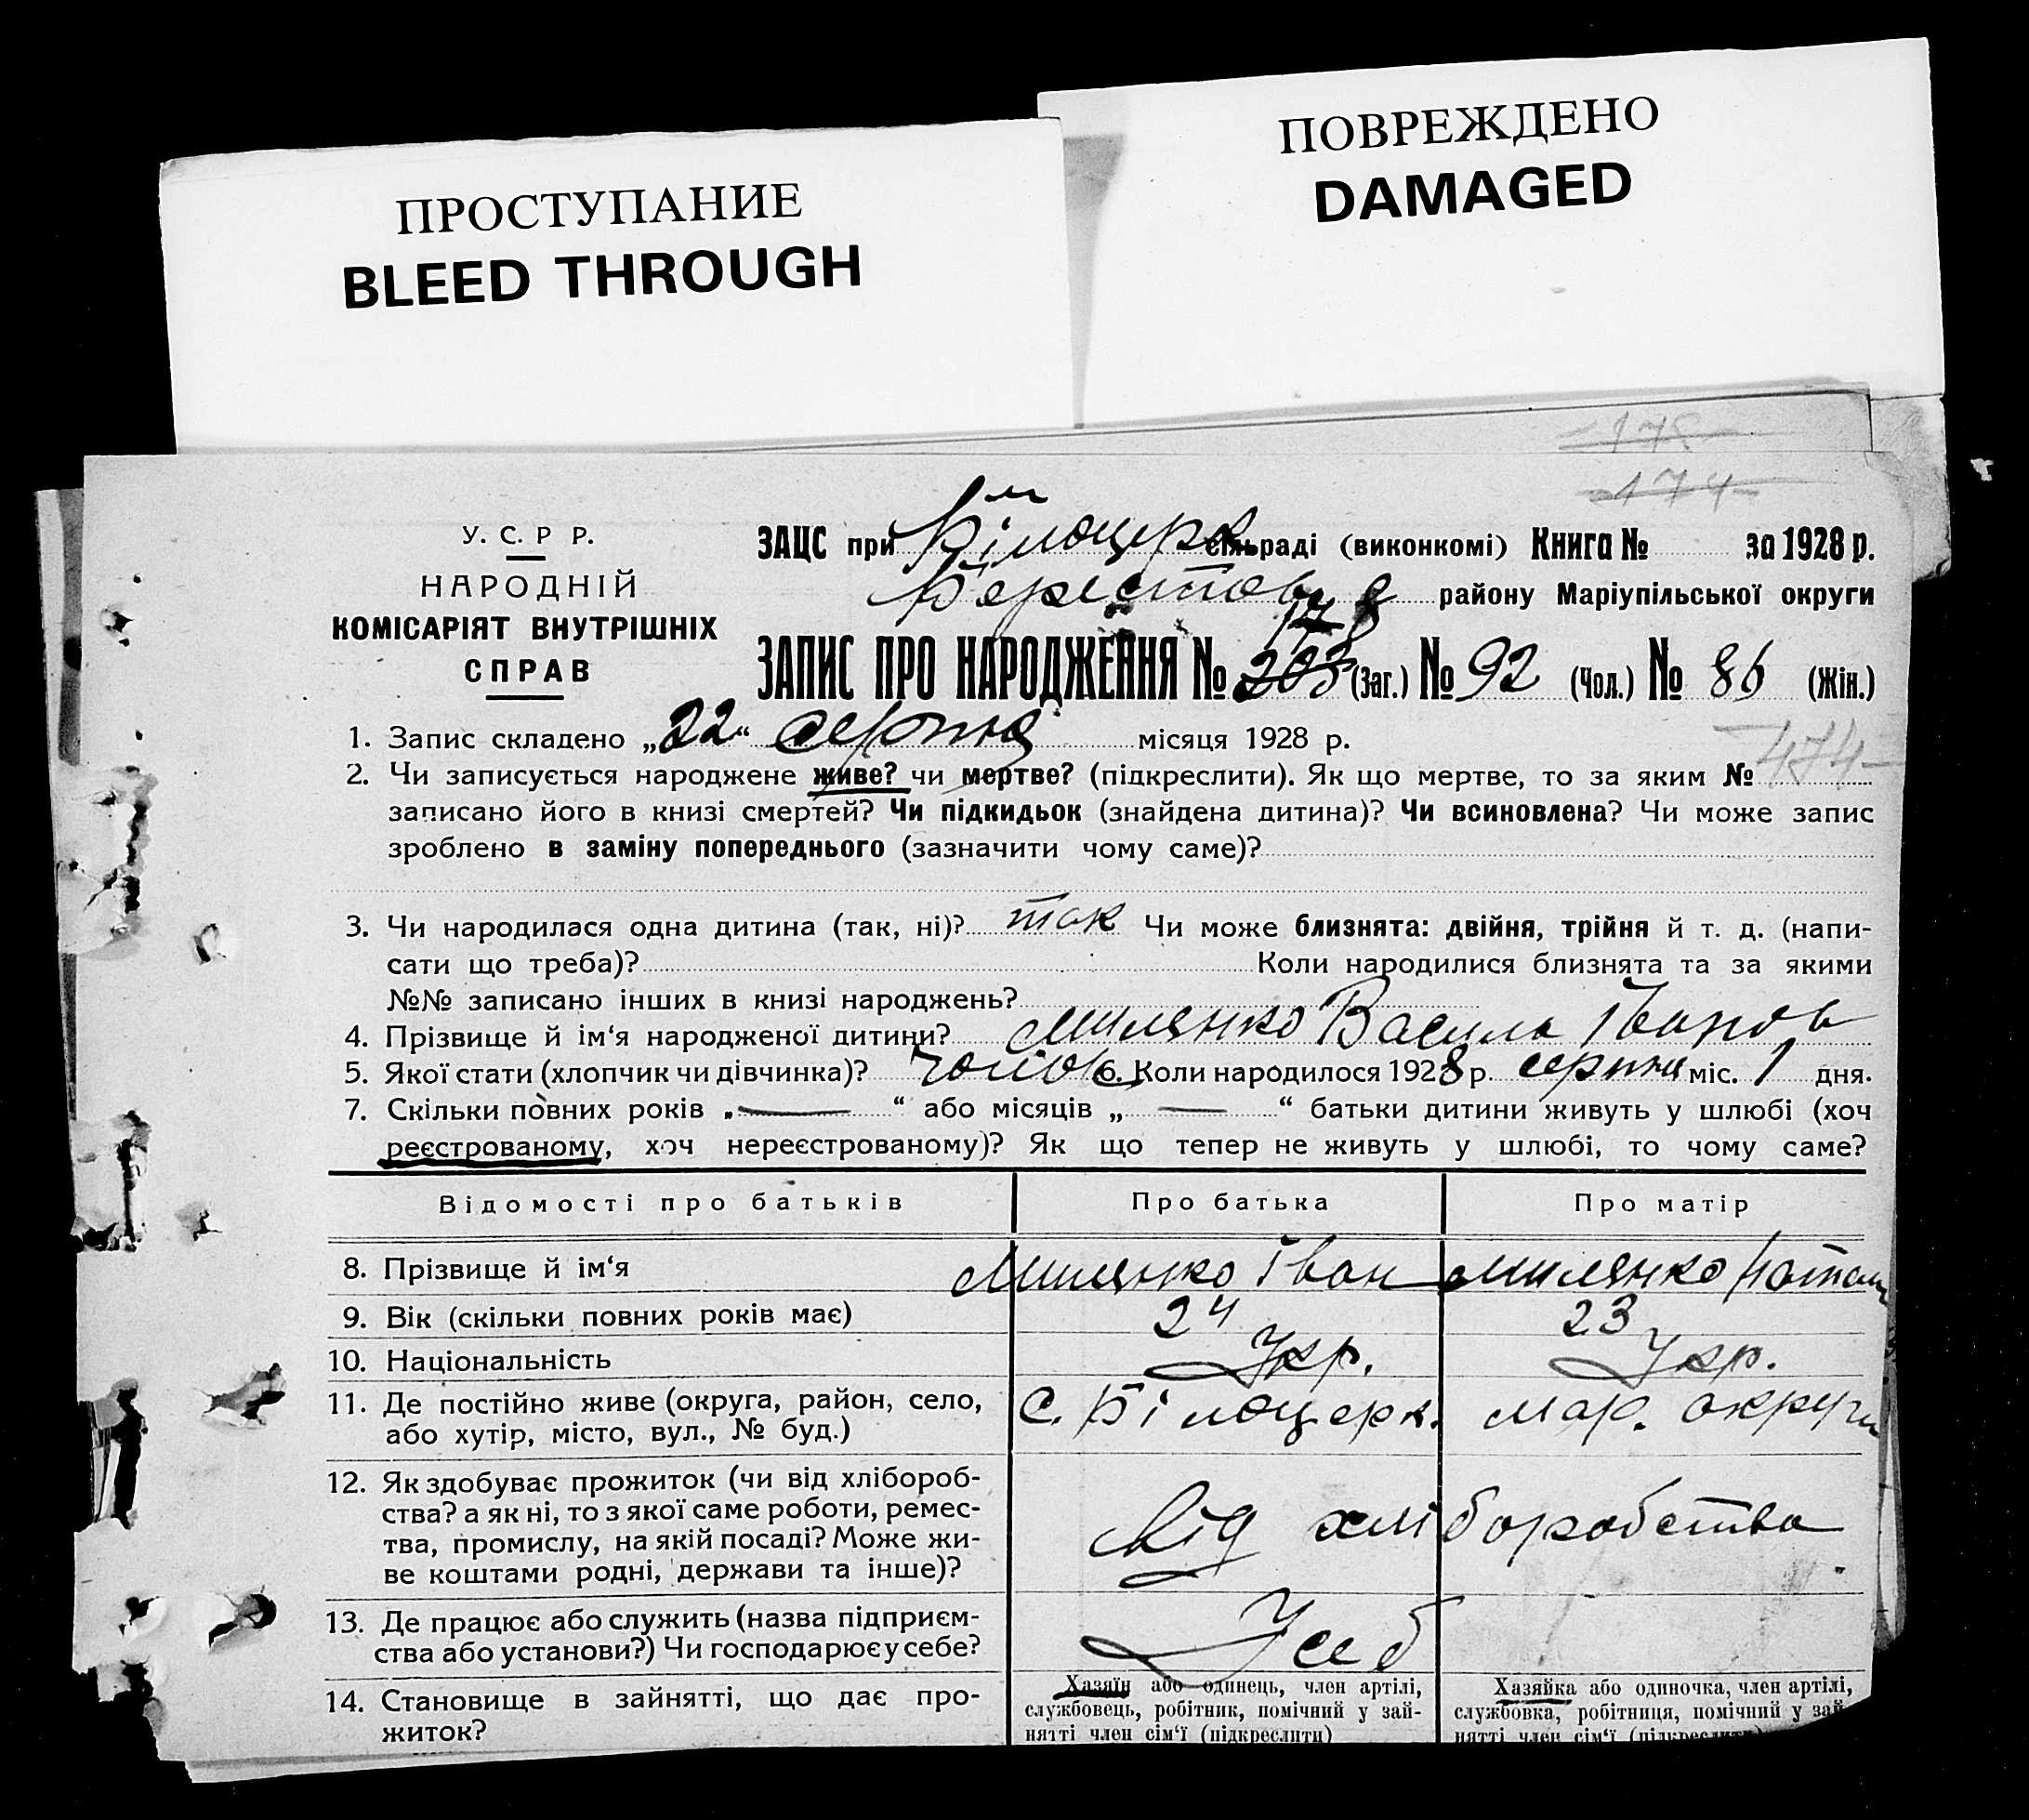 ПРОСТУПАНИЕ
BLEED THROUGH
ПОВРЕЖДЕНО
DAMAGED
174
У. С. Р Р.
НАРОДНІЙ
КОМІСАРІЯТ ВНУТРІШНІХ
СПРАВ
ЗАЦС при Білоцерк сільраді (виконкомі) Книга № за 1928 р.
району Маріупільської округи
ЗАПИС ПРО НАРОДЖЕННЯ № 203 178 (Заг.) № 92 (Чол.) № 86 (Жін.)
1. Запис складено „22“ серпня місяця 1928 р.
474
2. Чи записується народжене живе? чи мертве? (підкреслити). Як що мертве, то за яким №
записано його в книзі смертей? Чи підкидьок (знайдена дитина)? Чи всиновлена? Чи може запис
зроблено в заміну попереднього (зазначити чому саме)?
3. Чи народилася одна дитина (так, ні)? так Чи може близнята: двійня, трійня й т. д. (напи-
сати що треба)? Коли народилися близнята та за якими
№№ записано інших в книзі народжень?
4. Прізвище й ім‘я народженої дитини? Миленко Василь Іванов
5. Якої стати (хлопчик чи дівчинка)? 6. Коли народилося 1928 р. серпня міс. 1 дня.
7. Скільки повних років „—“ або місяців „—“ батьки дитини живуть у шлюбі (хоч
реєстрованому, хоч нереєстрованому)? Як що тепер не живуть у шлюбі, то чому саме?
Відомості про батьків Про батька Про матір
8. Прізвище й ім‘я Миленко Іван Миленко
9. Вік (скільки повних років має) 24 23
10. Національність Укр. Укр.
11. Де постійно живе (округа, район, село, с. Білоцерк. Мар. округи
або хутір, місто, вул., № буд.)
12. Як здобуває прожиток (чи від хлібороб-
ства? а як ні, то з якої саме роботи, ремес- Від хліборобства
тва, промислу, на якій посаді? Може жи-
ве коштами родні, держави та інше)?
13. Де працює або служить (назва підприєм- У себ
ства або установи?) Чи господарює у себе?
14. Становище в зайнятті, що дає про-
житок?
Хазяїн або одинець, член артілі,
службовець, робітник, помічний у зай-
нятті член сім‘ї (підкреслити)
Хазяйка або одиночка, член артілі,
службовка, робітниця, помічний у зай
нятті член сім‘ї (підкреслити)